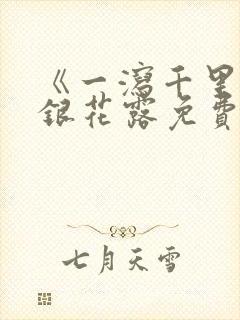 《一瀉千里
銀花露免費
七月天雪